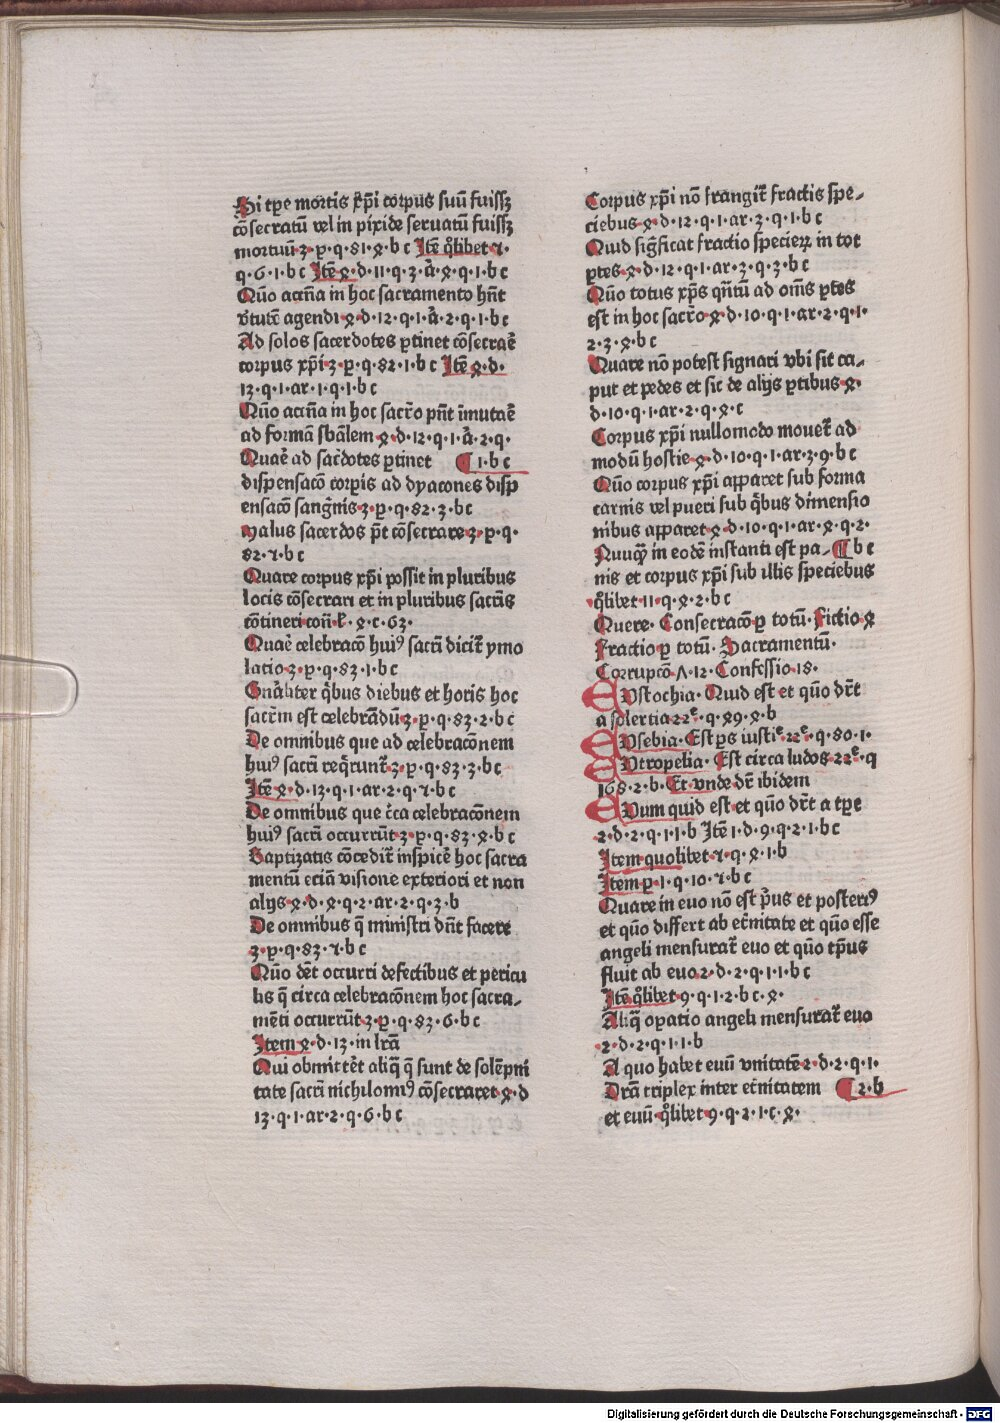 Si tꝑe mortis xp̄i corpus suū fuissꝫ
cōsecratū vel in pixide seruatū fuissꝫ
mortuū·3·p·q·81·4·b c Itē qͦlibet 7·
q·6·1·b c Itē 4·d·11·q·3·a͛·4·q·1·b c
Qūo accn̄a in hoc sacramento hn̄t
v̓tutē agendi 4·d·12·q·1·a͛·2·q·1·b c
Ad solos sacerdotes ꝑtinet cōsecrar̄
corpus xp̄i·3·p·q·82·1·b c Itē 4·d·
13·q·1·ar·1·q·1·b c
Qūo accn̄a in hoc sacr̄o pn̄t īmutar̄
ad formā sb̄alem 4·d·12·q·1·a͛·2·q·
Quar̄ ad sac̓dotes ꝑtinet ¶ 1·b c
dispensacō corꝑis ad dyacones disp
ensacō sang̓nis·3·p·q·82·3·bc
Malus sacerdos pt̄ cōsecrare·3·p·q·
82·7·b c
Quare corpus xp̄i possit in pluribus
locis cōsecrari et in pluribus sacr̄is
cōtineri·con̄·l̵·4·c·63·
Quar̄ celebracō huiꝰ sacr̄i dicit᷑ ymo
latio·3·p·q·83·1·bc
Gn̄aliter q̇bus diebus et horis hoc
sacr̄m est celebrādū·3·p·q·83·2·b c
De omnibus que ad celebracōnem
huiꝰ sacr̄i req̇runt᷑·3·p·q·83·3·bc
Itē 4·d·13·q·1·ar·2·q·7·b c
De omnibus que c̓ca celebracōnem
huiꝰ sacr̄i occurrūt·3·p·q·83·4·b c
Baptizatis cōcedit᷑ inspicē hoc sacra
mentū eciā visione exteriori et non
alijs·4·d·4·q·2·ar·2·q·3·b
De omnibus q̄ ministri dn̄t facere
3·p·q·83·7·b c
Qūo dēt occurri defectibus et pericu
lis q̄ circa celebracōnem hoc sacra⸗
mēti occurrūt·3·p·q·83·6·b c
Item 4·d·13·in lr̄a
Qui obmittēt aliq̄ q̄ sunt de solēpni
tate sacr̄i nichlomiꝰ cōsecraret·4·d
13·q·1·ar·2·q·6·b c
Corpus xp̄i nō frangit᷑ fractis spe⸗
ciebus·4·d·12·q·1·ar·3·q·1·b c
Quid sig̓ficat fractio specieꝝ in tot
ꝑtes·4·d·12·q·1·ar·3·q·3·b c
Qūo totus xp̄s qn̄tū ad om̄s ꝑtes
est in hoc sacr̄o·4·d·10·q·1·ar·2·q·1·
2·3·4·b c
Quare nō potest signari vbi sit ca⸗
put et pedes et sic de alijs ꝑtibus·4·
d·10·q·1·ar·2·q·4·c
Corpus xp̄i nullomodo mouet᷑ ad
modū hostie·4·d·10·q·1·ar·3·9·b c
Qūo corpus xp̄i apparet sub forma
carnis vel pueri sub q̇bus dimensio
nibus apparet·4·d·10·q·1·ar·4·q·2·
Nuuq̄ in eodē instanti est pa⸗ ¶ b c
nis et corpus xp̄i sub illis speciebus
qͦlibet·11·q·4·2·b c
Quere· Consecracō ꝑ totū· Fictio·4
Fractio ꝑ totū· Sacramentū·
Corrupcō·Λ·12· Confessio·18·
Eustochia· Quid est et qūo dr̄t
a solertia·22ᵉ·q·49·4·b
Eusebia· Est ꝑs iusti᷑·22ᵉ·q·80·1·
Eutropelia· Est circa ludos·22ᵉ·q
168·2·b· Et vnde dr̄ ibidem
Euum quid est et qūo dr̄t a tꝑe
2·d·2·q·1·1·b Itē 1·d·9·q·2·1·b c
Item quolibet·7·q·4·1·b
Item p·1·q·10·7·b c
Quare in euo nō est p̓us et posteriꝰ
et qūo differt ab et̓nitate et qūo esse
angeli mensurat᷑ euo et qūo tp̄us
fluit ab euo·2·d·2·q·1·1·b c
Itē qͦlibet·9·q·1·2·b c·4·
Aliq̄ oꝑatio angeli mensurat᷑ euo
2·d·2·q·1·1·b
A quo habet euū vnitatē·2·d·2·q·1·
Dr̄a triplex inter et̓nitatem ¶ 2·b
et euū·qͦlibet·9·q·2·1·c·4·
Digitalisierung gefördert durch die Deutsche Forschungsgemeinschaft - DFG